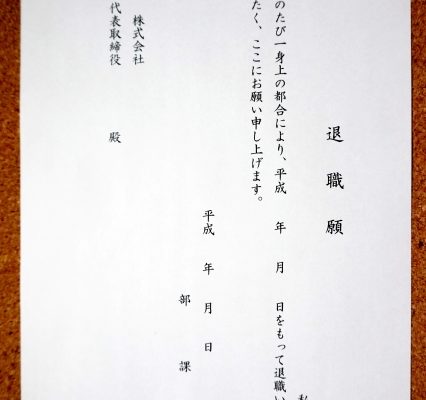 退職願
私
のたび一身上の都合により、平成 年 月 日をもって退職い
たく、ここにお願い申し上げます。
平成 年 月 日
部 課
株式会社
代表取締役 殿